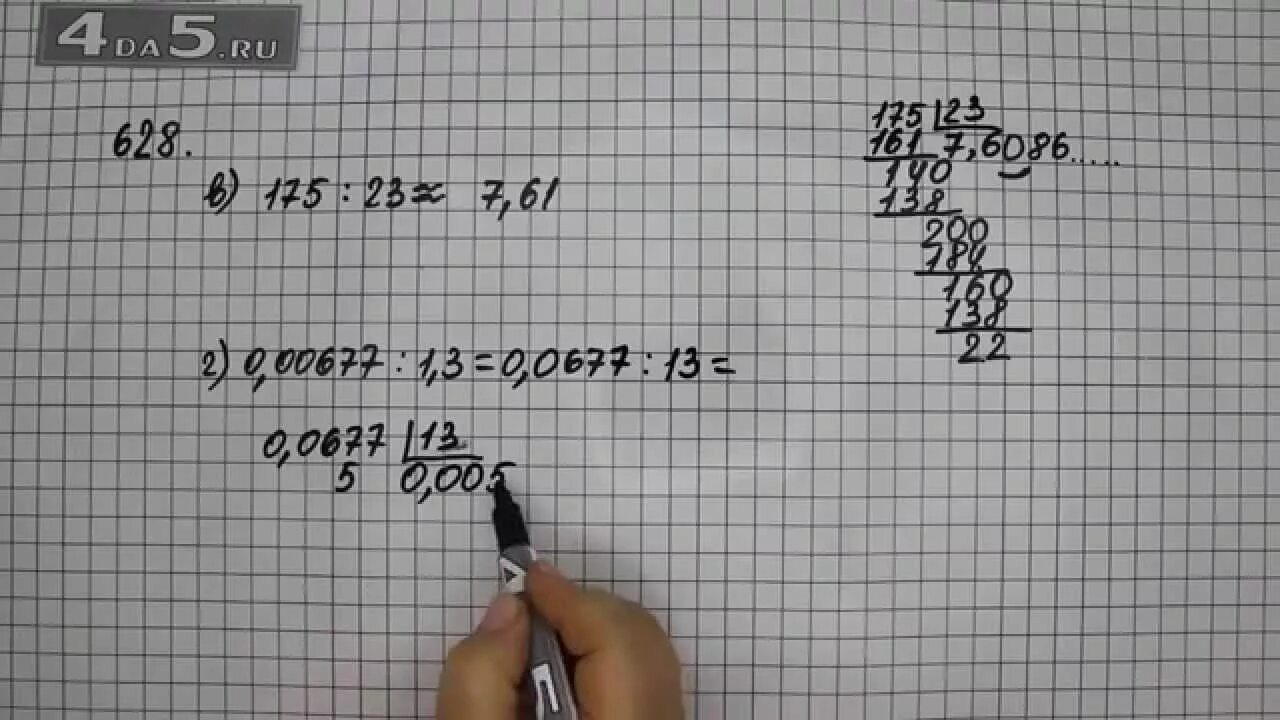 4DA5.RU
628.
в) 175 : 23 ≈ 7,61
175 | 23
161 7,6086.....
140
138
200
184
160
138
22
г) 0,00677 : 1,3 = 0,0677 : 13 =
0,0677 | 13
5 0,005